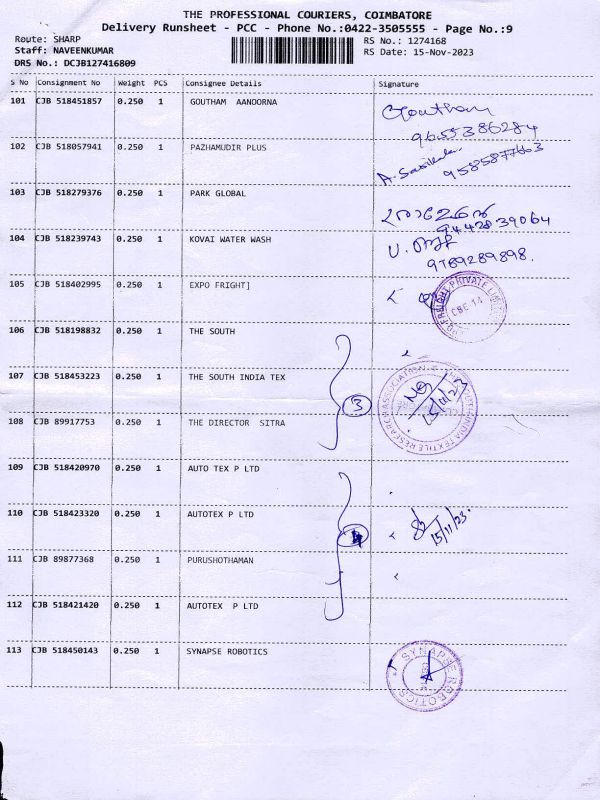 THE PROFESSIONAL COURIERS, COIMBATORE
Delivery Runsheet - PCC - Phone No.:0422-3505555 - Page No.:9
Route: SHARP
RS No.: 1274168
Staff: NAVEENKUMAR
RS Date: 15-Nov-2023
DRS No.: DCJB127416809
S No Consignment No Weight PCS Consignee Details Signature
101 CJB 518451857 0.250 1 GOUTHAM AANOORNA
Goutham
9655386284
102 CJB 518057941 0.250 1 PAZHAMUDIR PLUS
A. Sasikala
9585877663
103 CJB 518279376 0.250 1 PARK GLOBAL
104 CJB 518239743 0.250 1 KOVAI WATER WASH
U.
9789289898.
105 CJB 518402995 0.250 1 EXPO FRIGHT]
FREIGHT PRIVATE
CBE-14
106 CJB 518198832 0.250 1 THE SOUTH
107 CJB 518453223 0.250 1 THE SOUTH INDIA TEX
3
15/11/23
INDIA TEXTILE RESEARCH ASSOCIATION
108 CJB 89917753 0.250 1 THE DIRECTOR SITRA
109 CJB 518420970 0.250 1 AUTO TEX P LTD
110 CJB 518423320 0.250 1 AUTOTEX P LTD
4
15/11/23.
111 CJB 89877368 0.250 1 PURUSHOTHAMAN
112 CJB 518421420 0.250 1 AUTOTEX P LTD
113 CJB 518450143 0.250 1 SYNAPSE ROBOTICS
SYNAPSE ROBOTICS